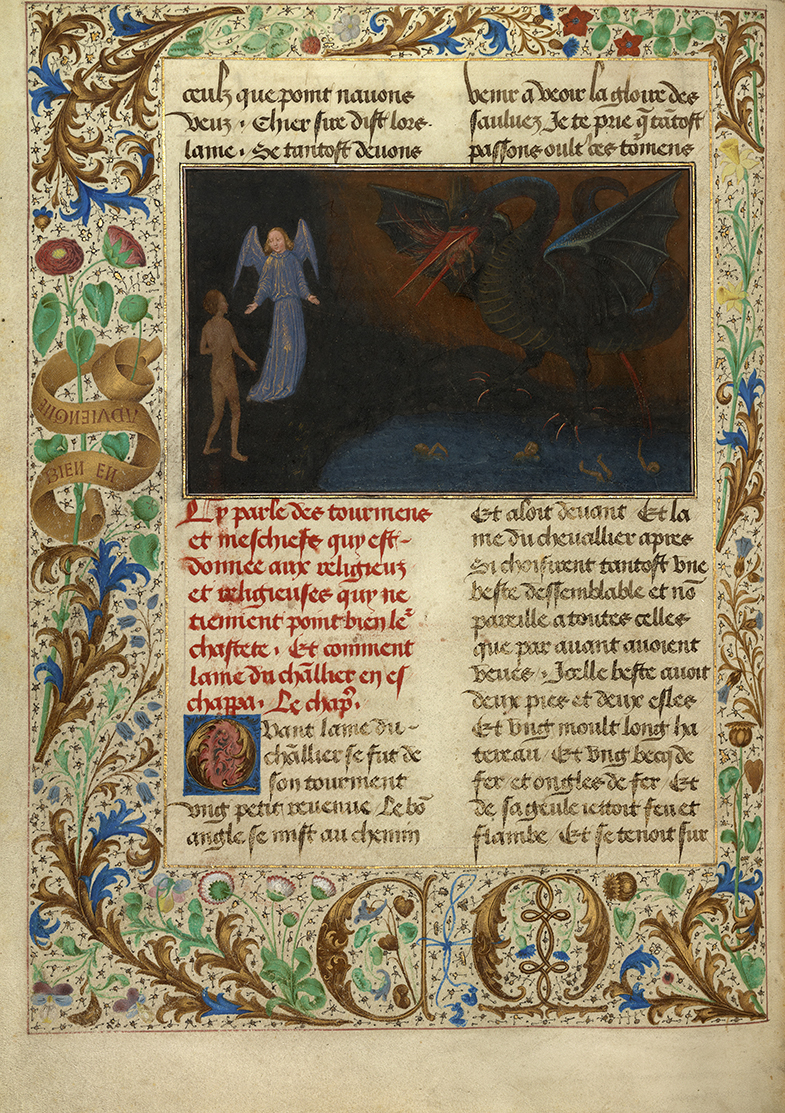 ceulz que point nauons
veuz . Chier sire dist lors .
lame . Se tantost deuons
venir a veoir la gloire des
sauluez Je te prie q̃ tãtost
passons oult ces tõmens
BIEN EN
ADVIENGNE
Cy parle des tourmens
et meschiefs quy est
donnee aux religieuz
et religieuses quy ne
tiennent point bien le᷑
chastete . Et comment
lame du chãllier en es
chappa . Le chap̃ .
Quant lame du
chãllier se fut de
son tourment
vng petit reuenue Le bõ
angle se mist au chemin
Et aloit deuant Et la
me du cheuallier apres
Si choisirent tantost vne
beste dessemblable et nõ
pareille a toutes celles
que par auant auoient
veues . Icelle beste auoit
deux pies et deux esles
Et vng moult long ha
tereau Et vng becq de
fer et ongles de fer Et
de sa geule iettoit feu et
flambe Et se tenoit sur
C M